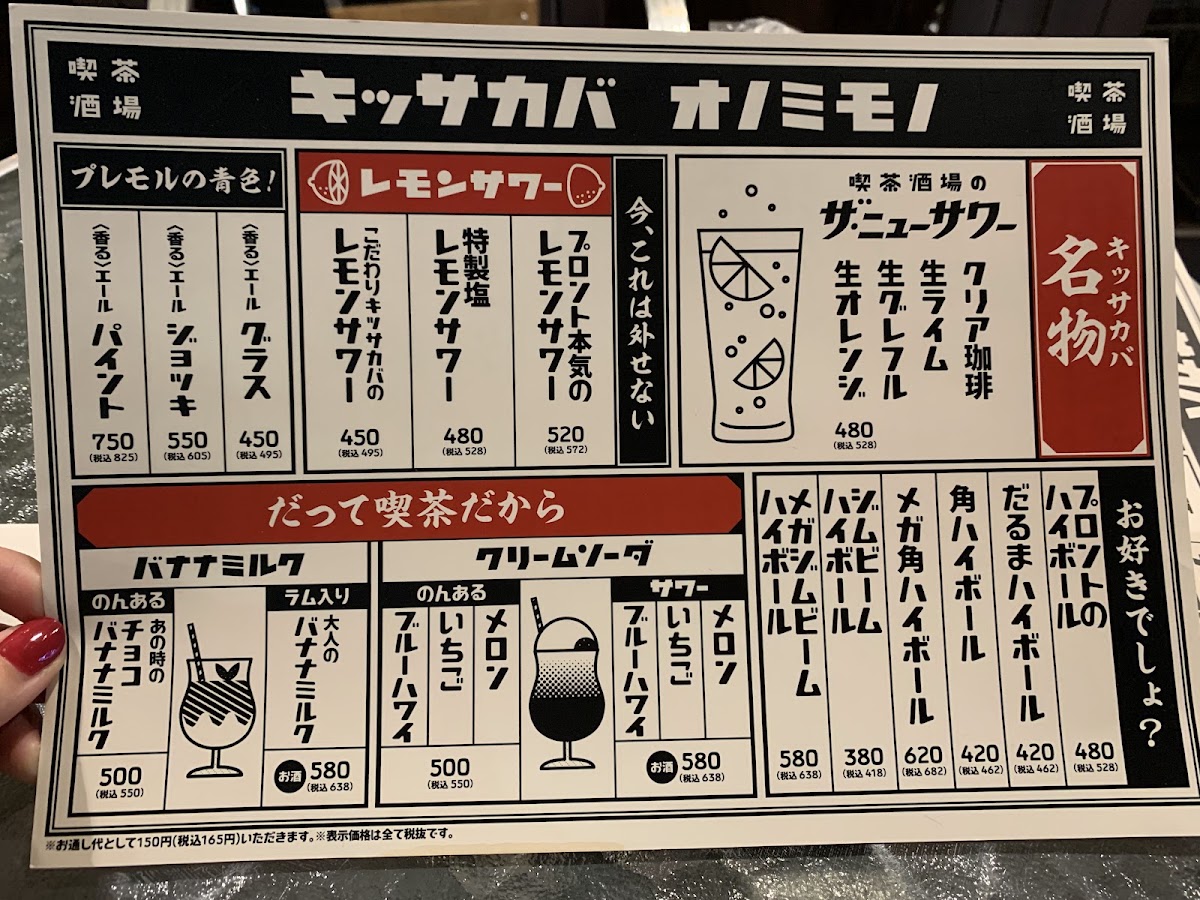 喫茶
酒場
キッサカバ オノミモノ
喫茶
酒場
キッサカバ
名物
喫茶酒場の
ザ・ニューサワー
クリア珈琲
生ライム
生グレフル
生オレンジ
480
(税込 528)
今、これは外せない
レモンサワー
プロント本気の
レモンサワー
520
(税込 572)
特製塩
レモンサワー
480
(税込 528)
こだわりキッサカバの
レモンサワー
450
(税込 495)
プレモルの青色!
〈香る〉エール グラス
450
(税込 495)
〈香る〉エール ジョッキ
550
(税込 605)
〈香る〉エール パイント
750
(税込 825)
お好きでしょ?
プロントの
ハイボール
480
(税込 528)
だるまハイボール
420
(税込 462)
角ハイボール
420
(税込 462)
メガ角ハイボール
620
(税込 682)
ジムビーム
ハイボール
380
(税込 418)
メガジムビーム
ハイボール
580
(税込 638)
だって喫茶だから
クリームソーダ
サワー
メロン
いちご
ブルーハワイ
お酒 580
(税込 638)
のんある
メロン
いちご
ブルーハワイ
500
(税込 550)
バナナミルク
ラム入り
大人の
バナナミルク
お酒 580
(税込 638)
のんある
あの時の
チョコ
バナナミルク
500
(税込 550)
※お通し代として150円(税込165円)いただきます。※表示価格は全て税抜です。